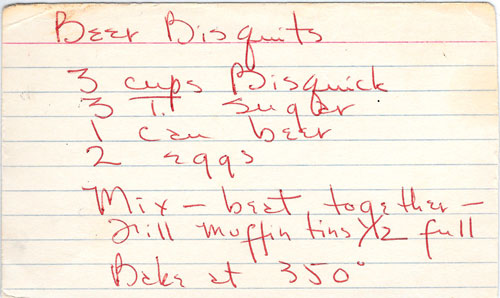 Beer Bisquits
3 cups Bisquick
3 T.T sugar
1 can beer
2 eggs
Mix – beat together –
Fill muffin tins 1/2 full
Bake at 350°